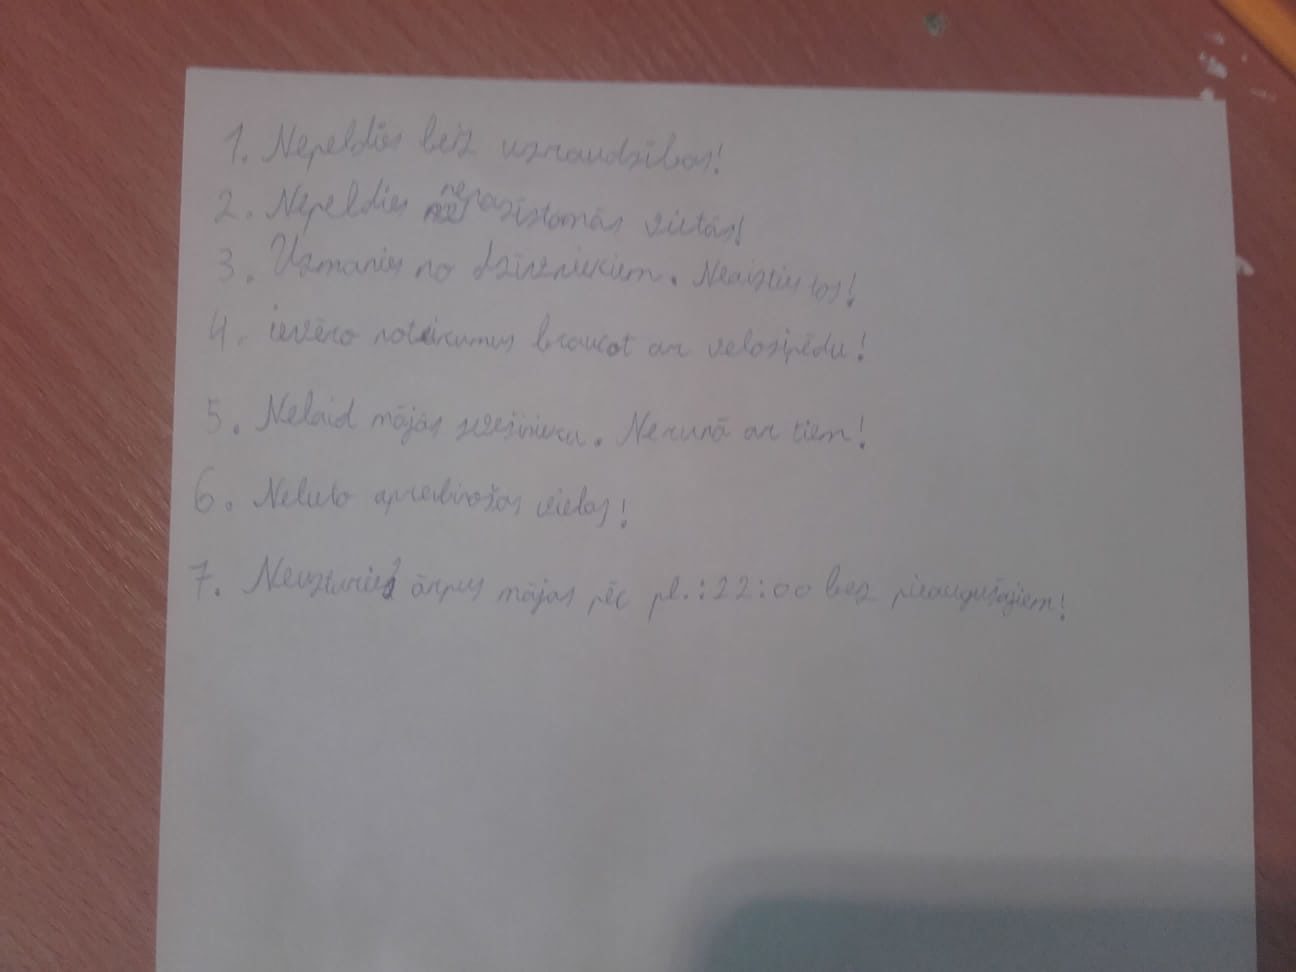 1. Nepeldies bez uzraudzības!
2. Nepeldies nepazīstamās vietās!
3. Uzmanies no dzīvniekiem. Neaiztiec tos!
4. ievēro noteikumus braucot ar velosipēdu!
5. Nelaid mājās svešinieku. Nerunā ar tiem!
6. Nelieto apreibinošas vielas!
7. Neuzturies ārpus mājas pēc pl.:22:00 bez pieaugušajiem!